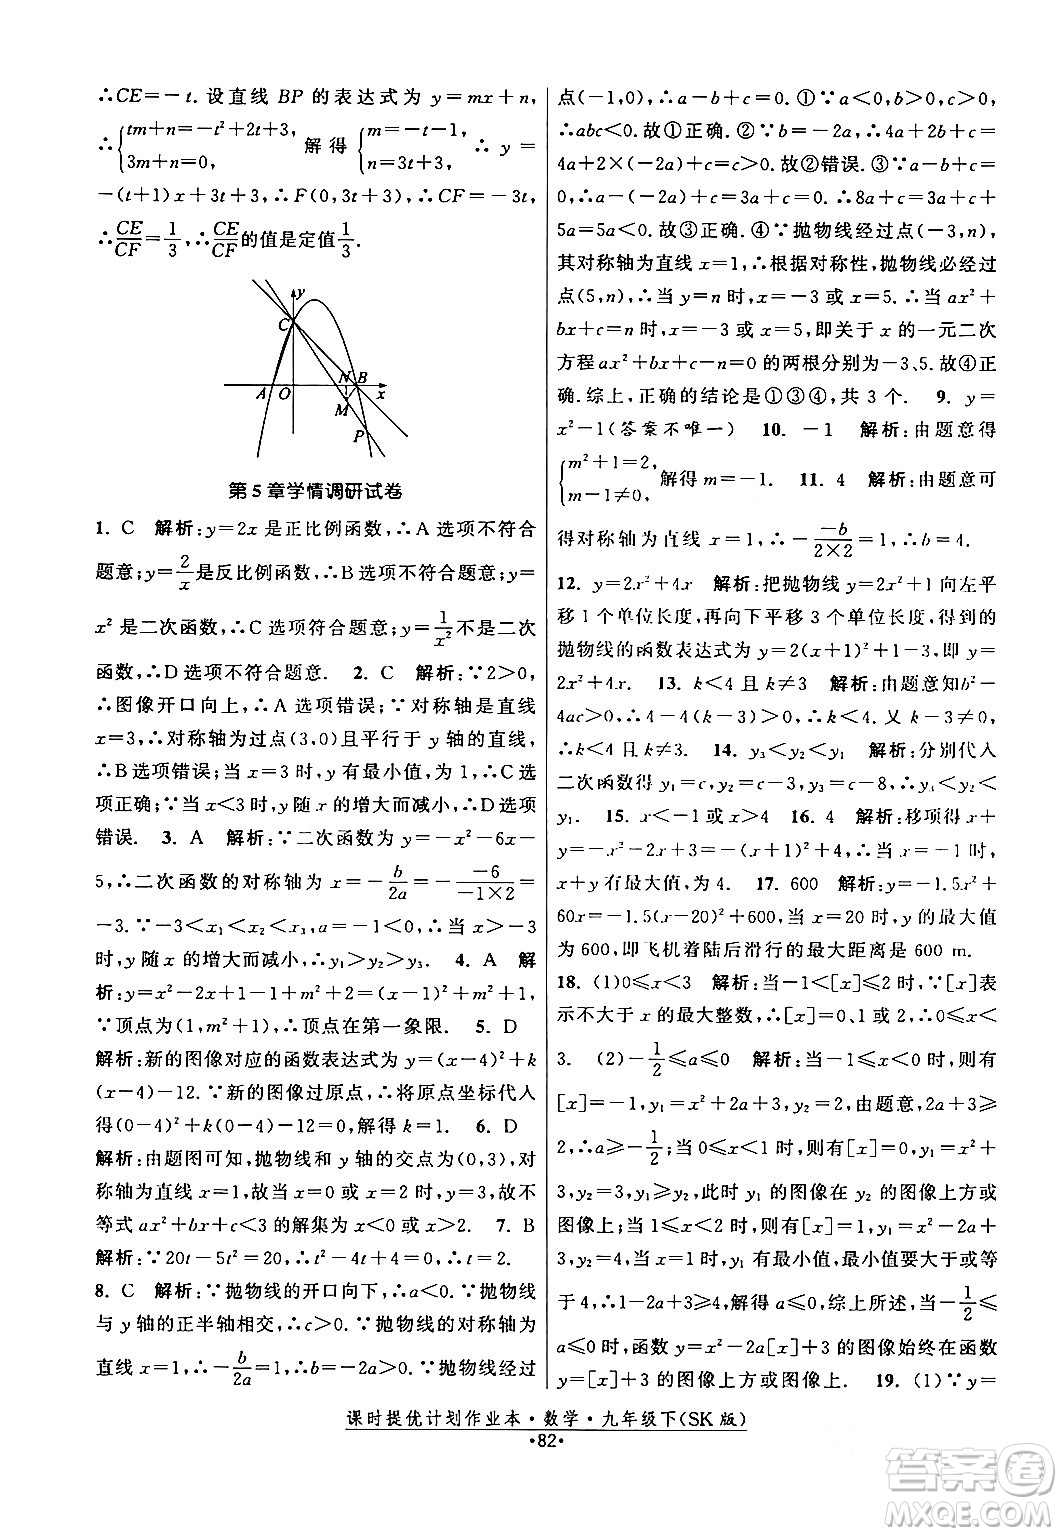 ∴CE=－t. 设直线 BP 的表达式为 y=mx+n,
∴{tm+n=－t²+2t+3, 3m+n=0, 解得{m=－t－1, n=3t+3, ∴ y=
－(t+1)x+3t+3,∴F(0,3t+3).∴CF=－3t,
∴CE/CF=1/3,∴CE/CF的值是定值1/3.
y
C
N
B
A
O
x
M
P
第 5 章学情调研试卷
1. C 解析:y=2x 是正比例函数,∴A 选项不符合
题意;y=2/x是反比例函数,∴B 选项不符合题意;y=
x² 是二次函数,∴C 选项符合题意;y=1/x²不是二次
函数,∴D 选项不符合题意. 2. C 解析:∵2>0,
∴图像开口向上,∴A 选项错误;∵对称轴是直线
x=3,∴对称轴为过点(3,0)且平行于 y 轴的直线,
∴B 选项错误;当 x=3 时,y 有最小值,为 1,∴C 选
项正确;∵当 x<3 时,y 随 x 的增大而减小,∴D 选项
错误. 3. A 解析:∵二次函数为 y=－x²－6x－
5,∴二次函数的对称轴为 x=－b/2a=－－6/－1×2=
－3.∵－3<x₁<x₂<x₃,∴当 x>－3 时,
y 随 x 的增大而减小,∴y₁>y₂>y₃. 4. A 解
析:∵y=x²－2x+m²+2=(x－1)²+(m²+1),
∵顶点为(1,m²+1),∴顶点在第一象限. 5. D
解析:新的图像对应的函数表达式为 y=(x－4)²+k
(x－4)－12.∵新的图像过原点,∴将原点坐标代入
得(0－4)²+k(0－4)－12=0,解得 k=1. 6. D
解析:由题图可知,抛物线和 y 轴的交点为(0,3),对
称轴为直线 x=1,故当 y=3 时,x=0 或 x=2,故不
等式 ax²+bx+c<3 的解集为 x<0 或 x>2. 7. B
解析:∵20t－5t²=20,∴t²－4t+4=0,解得 t=2.
8. C 解析:∵抛物线的开口向下,∴a<0.∵抛物线
与 y 轴的正半轴相交,∴c>0.∵抛物线的对称轴为
直线 x=1,∴－b/2a=1,∴b=－2a>0.∵抛物线经过
点(－1,0),∴a－b+c=0.①∵a<0,b>0,c>0,
∴abc<0.故①正确. ②∵b=－2a,∴4a+2b+c=
4a+2×(－2a)+c=c>0.故②错误.③∵a－b+
c=0,∴a－(－2a)+c=0.∴3a+c=0.∴8a+c=
5a+(3a+c)=5a. 又 ∵ a<0,∴8a+c=5a+0=
5a=5a<0.故③正确.④∵抛物线经过点(－3,n),
其对称轴为直线 x=1,∴根据对称性,抛物线必经过
点(5,n),∴当 y=n 时,x=－3 或 x=5.∴当 ax²+
bx+c=n 时,x=－3 或 x=5,即关于 x 的一元二次
方程 ax²+bx+c=n 的两根分别为－3、5. 故④正
确. 综上,正确的结论是①③④,共 3 个. 9. y=
x²－1(答案不唯一) 10. －1 解析:由题意得
{m²+1=2, m－1≠0, 解得 m=－1. 11. 4 解析:由题意可
得对称轴为直线 x=1,∴－－b/2×2=1,∴b=4.
12. y=2x²+4x 解析:把抛物线 y=2x²+1 向左平
移 1 个单位长度,再向下平移 3 个单位长度,得到的
抛物线的函数表达式为 y=2(x+1)²+1－3,即 y=
2x²+4x. 13. k<4 且 k≠3 解析:由题意知b²－
4ac>0,∴4－4(k－3)>0,∴k<4. 又 k－3≠0,
∴k<4 且 k≠3. 14. y₃<y₂<y₁ 解析:分别代入
二次函数得 y₁=c+24,y₂=c,y₃=c－8,∴y₃<y₂<
y₁. 15. x<－1 或 x>4 16. 4 解析:移项得 x+
y=－x²－2x+3=－(x+1)²+4,∴当 x=－1 时,
x+y 有最大值,为 4. 17. 600 解析:∵y=－1.5x²+
60x=－1.5(x－20)²+600,∴当 x=20 时,y 的最大值
为 600,即飞机着陆后滑行的最大距离是 600 m.
18. (1)0≤x<3 解析:当－1<[x]≤2 时,∵[x]表
示不大于 x 的最大整数,∴[x]=0、1 或 2,∴0≤x<
3. (2)－1/2≤a≤0 解析:当－1≤x<0 时,则有
[x]=－1,y₁=x²+2a+3,由题意,得 x²+2a+3≥
2,∴a≥－1/2;当 0≤x<1 时,则有[x]=0,y₁=x²+
3,∴x²+3≥3,此时 y₁ 的图像在 y₂ 的图像上方或
图像上;当 1≤x<2 时,则有[x]=1,y₁=x²－2a+
3,可知当 x=1 时,y₁ 有最小值,最小值应大于或等
于 4,∴1－2a+3≥4,∴a≤0. 综上所述,当－1/2≤
a≤0 时,函数 y=x²－2a[x]+3 的图像始终在函数
y=[x]+3 的图像上方或图像上. 19. (1)∵y=
课时提优计划作业本·数学·九年级下(SK 版)
·82·
答案圈
MXQE.COM